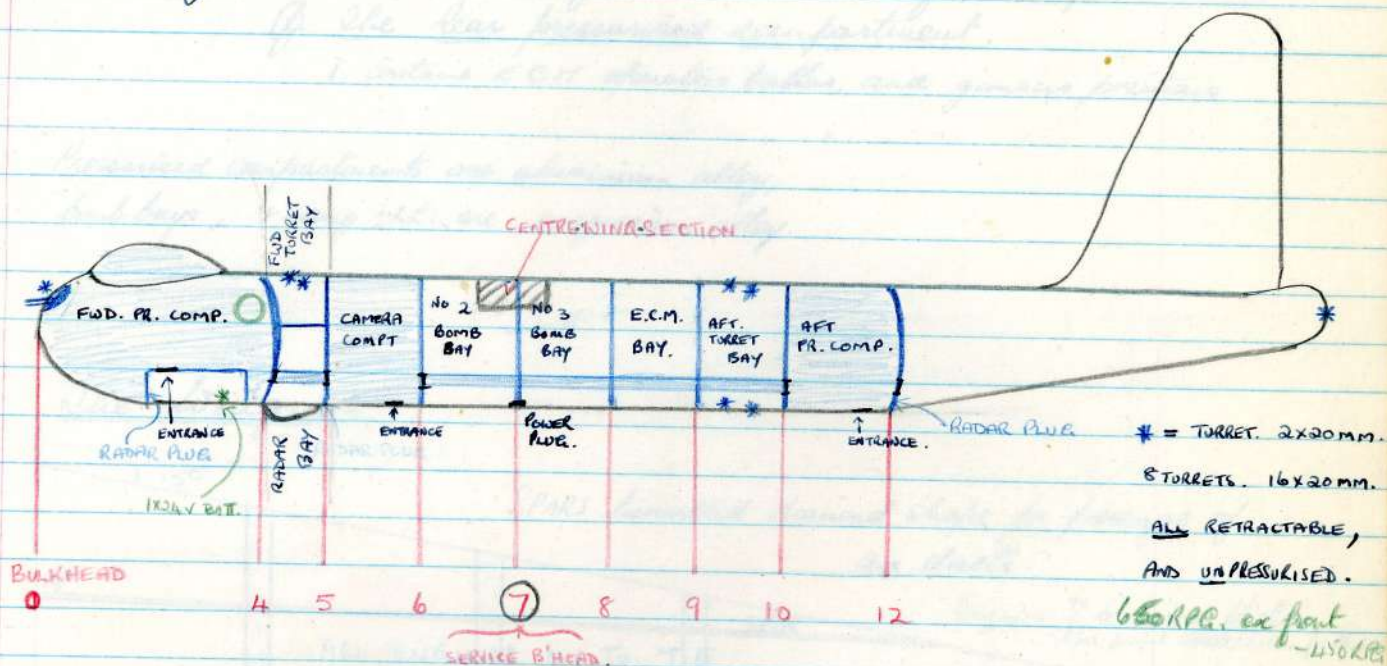 FWD
TURRET
BAY
CENTRE WING SECTION
FWD. PR. COMP.
CAMERA
COMPT
No 2
BOMB
BAY
No 3
BOMB
BAY
E.C.M.
BAY.
AFT.
TURRET
BAY
AFT
PR. COMP.
ENTRANCE
RADAR PLUG
1X24V BATT.
RADAR
BAY
RADAR PLUG
ENTRANCE
POWER
PLUG.
ENTRANCE.
RADAR PLUG
* = TURRET. 2X20MM.
8 TURRETS. 16X20MM.
ALL RETRACTABLE,
AND UNPRESSURISED.
BULKHEAD
0 4 5 6 7 8 9 10 12
SERVICE B'HEAD.
RPG. ex front
- 450 RPG